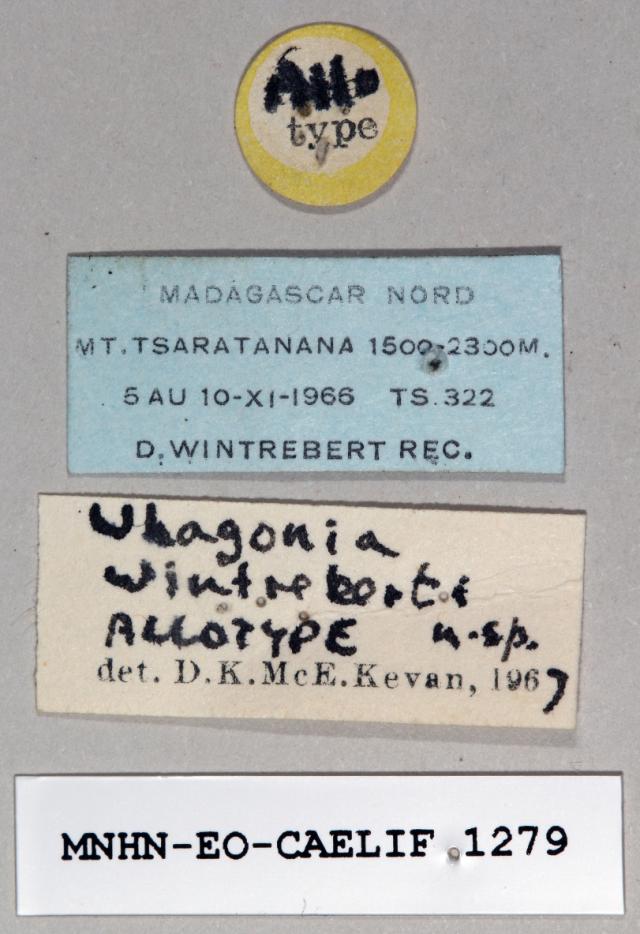 Allo
type
MADAGASCAR NORD
MT.TSARATANANA 1500-2300M.
5 AU 10-XI-1966 TS.322
D.WINTREBERT REC.
Uhagonia
Wintreberti
ALLOTYPE n.sp.
det. D.K.McE.Kevan, 1967
MNHN-EO-CAELIF 1279